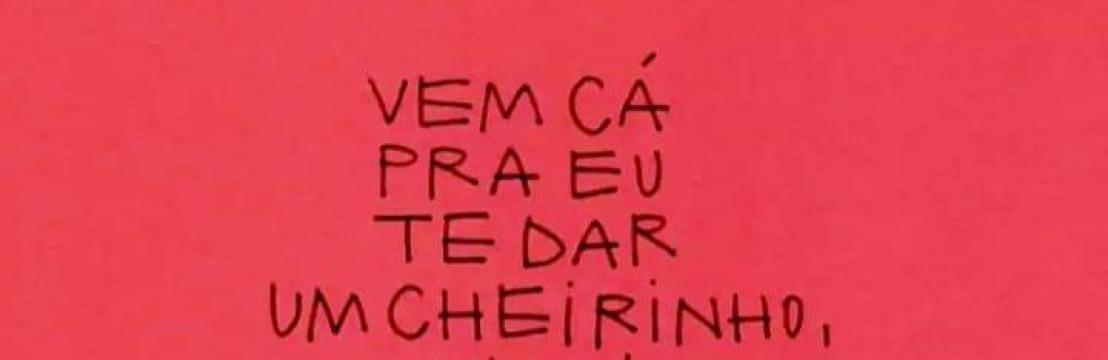 VEM CÁ
PRA EU
TE DAR
UM CHEiRiNHO,